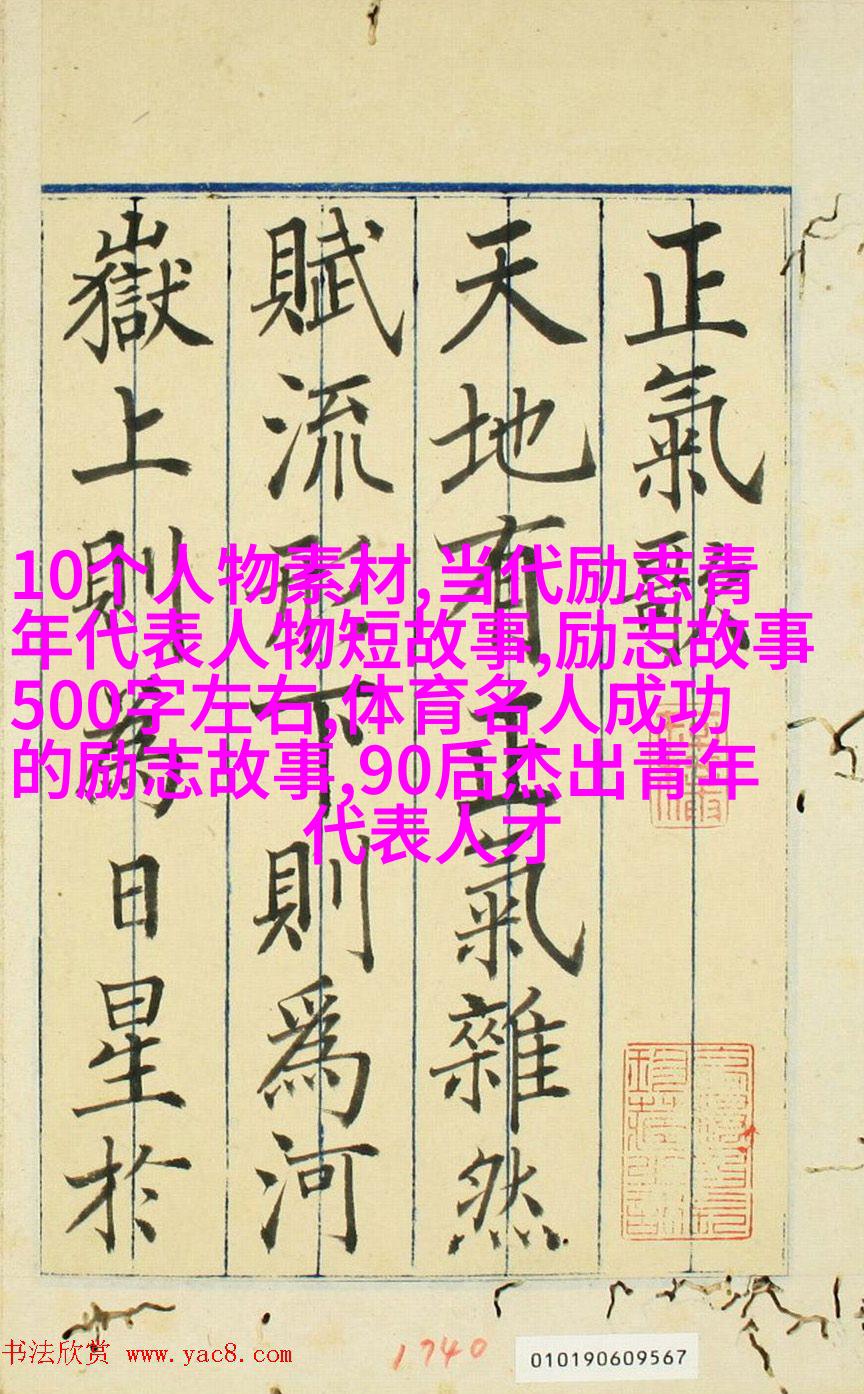 正氣歌
天地有正氣雜然
賦流形下則為河
嶽上則為日星於
10个人物素材,当代励志青
年代表人物短故事,励志故事
500字左右,体育名人成功
的励志故事,90后杰出青年
代表人才
书法欣赏 www.yac8.com
1740
010190609567